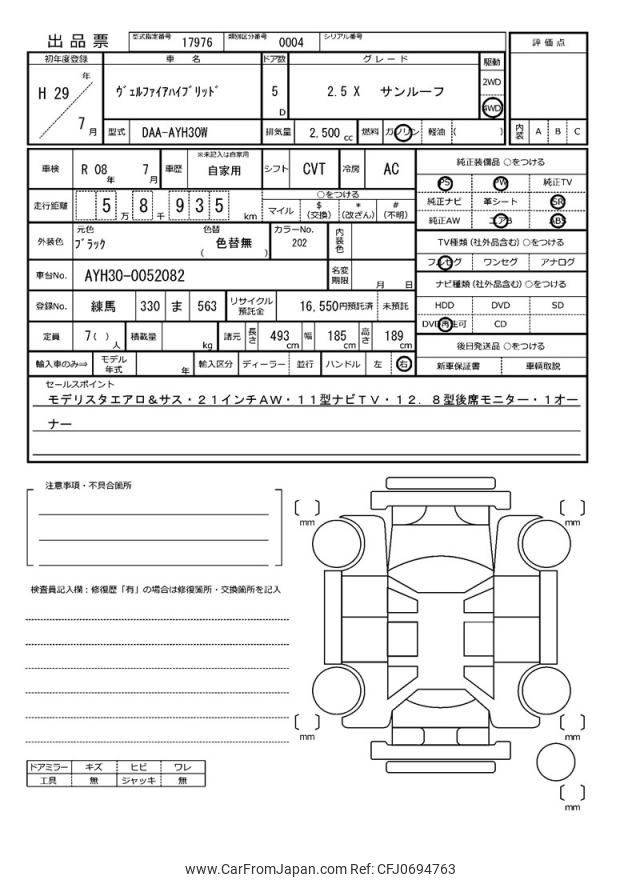 出品票 型式指定番号 17976 類別区分番号 0004 シリアル番号
評価点
初年度登録 車名 ドア数 グレード 駆動
H 29 年 7 月 ヴェルファイアハイブリッド 5 D 2.5 X サンルーフ 2WD 4WD
型式 DAA-AYH30W 排気量 2,500 cc 燃料 ガソリン 軽油 ( ) 内装 A B C
車検 R 08 年 7 月 車歴 ※未記入は自家用 自家用 シフト CVT 冷房 AC
純正装備品 ○をつける
PS PW 純正TV
純正ナビ 革シート SR
純正AW エアB ABS
走行距離 5 万 8 千 9 3 5 km
○をつける
マイル $ (交換) * (改ざん) # (不明)
外装色 元色 ブラック 色替 ( 色替無 ) カラーNo. 202 内装色
TV種類 (社外品含む) ○をつける
フルセグ ワンセグ アナログ
車台No. AYH30-0052082 名変期限 月 日
ナビ種類 (社外品含む) ○をつける
HDD DVD SD
DVD再生可 CD
登録No. 練馬 330 ま 563 リサイクル預託金 16,550円預託済 未預託
定員 7 ( ) 人 積載量 kg 諸元 長さ 493 cm 幅 185 cm 高さ 189 cm
後日発送品 ○をつける
新車保証書 車輌取説
輸入車のみ⇒ モデル年式 年 輸入区分 ディーラー 並行 ハンドル 左 右
セールスポイント
モデリスタエアロ&サス・21インチAW・11型ナビTV・12.8型後席モニター・1オー
ナー
注意事項・不具合箇所
検査員記入欄：修復歴「有」の場合は修復箇所・交換箇所を記入
ドアミラー キズ ヒビ ワレ
工具 無 ジャッキ 無
[ ] mm
[ ] mm
[ ] mm
[ ] mm
[ ] mm
www.CarFromJapan.com Ref: CFJ0694763